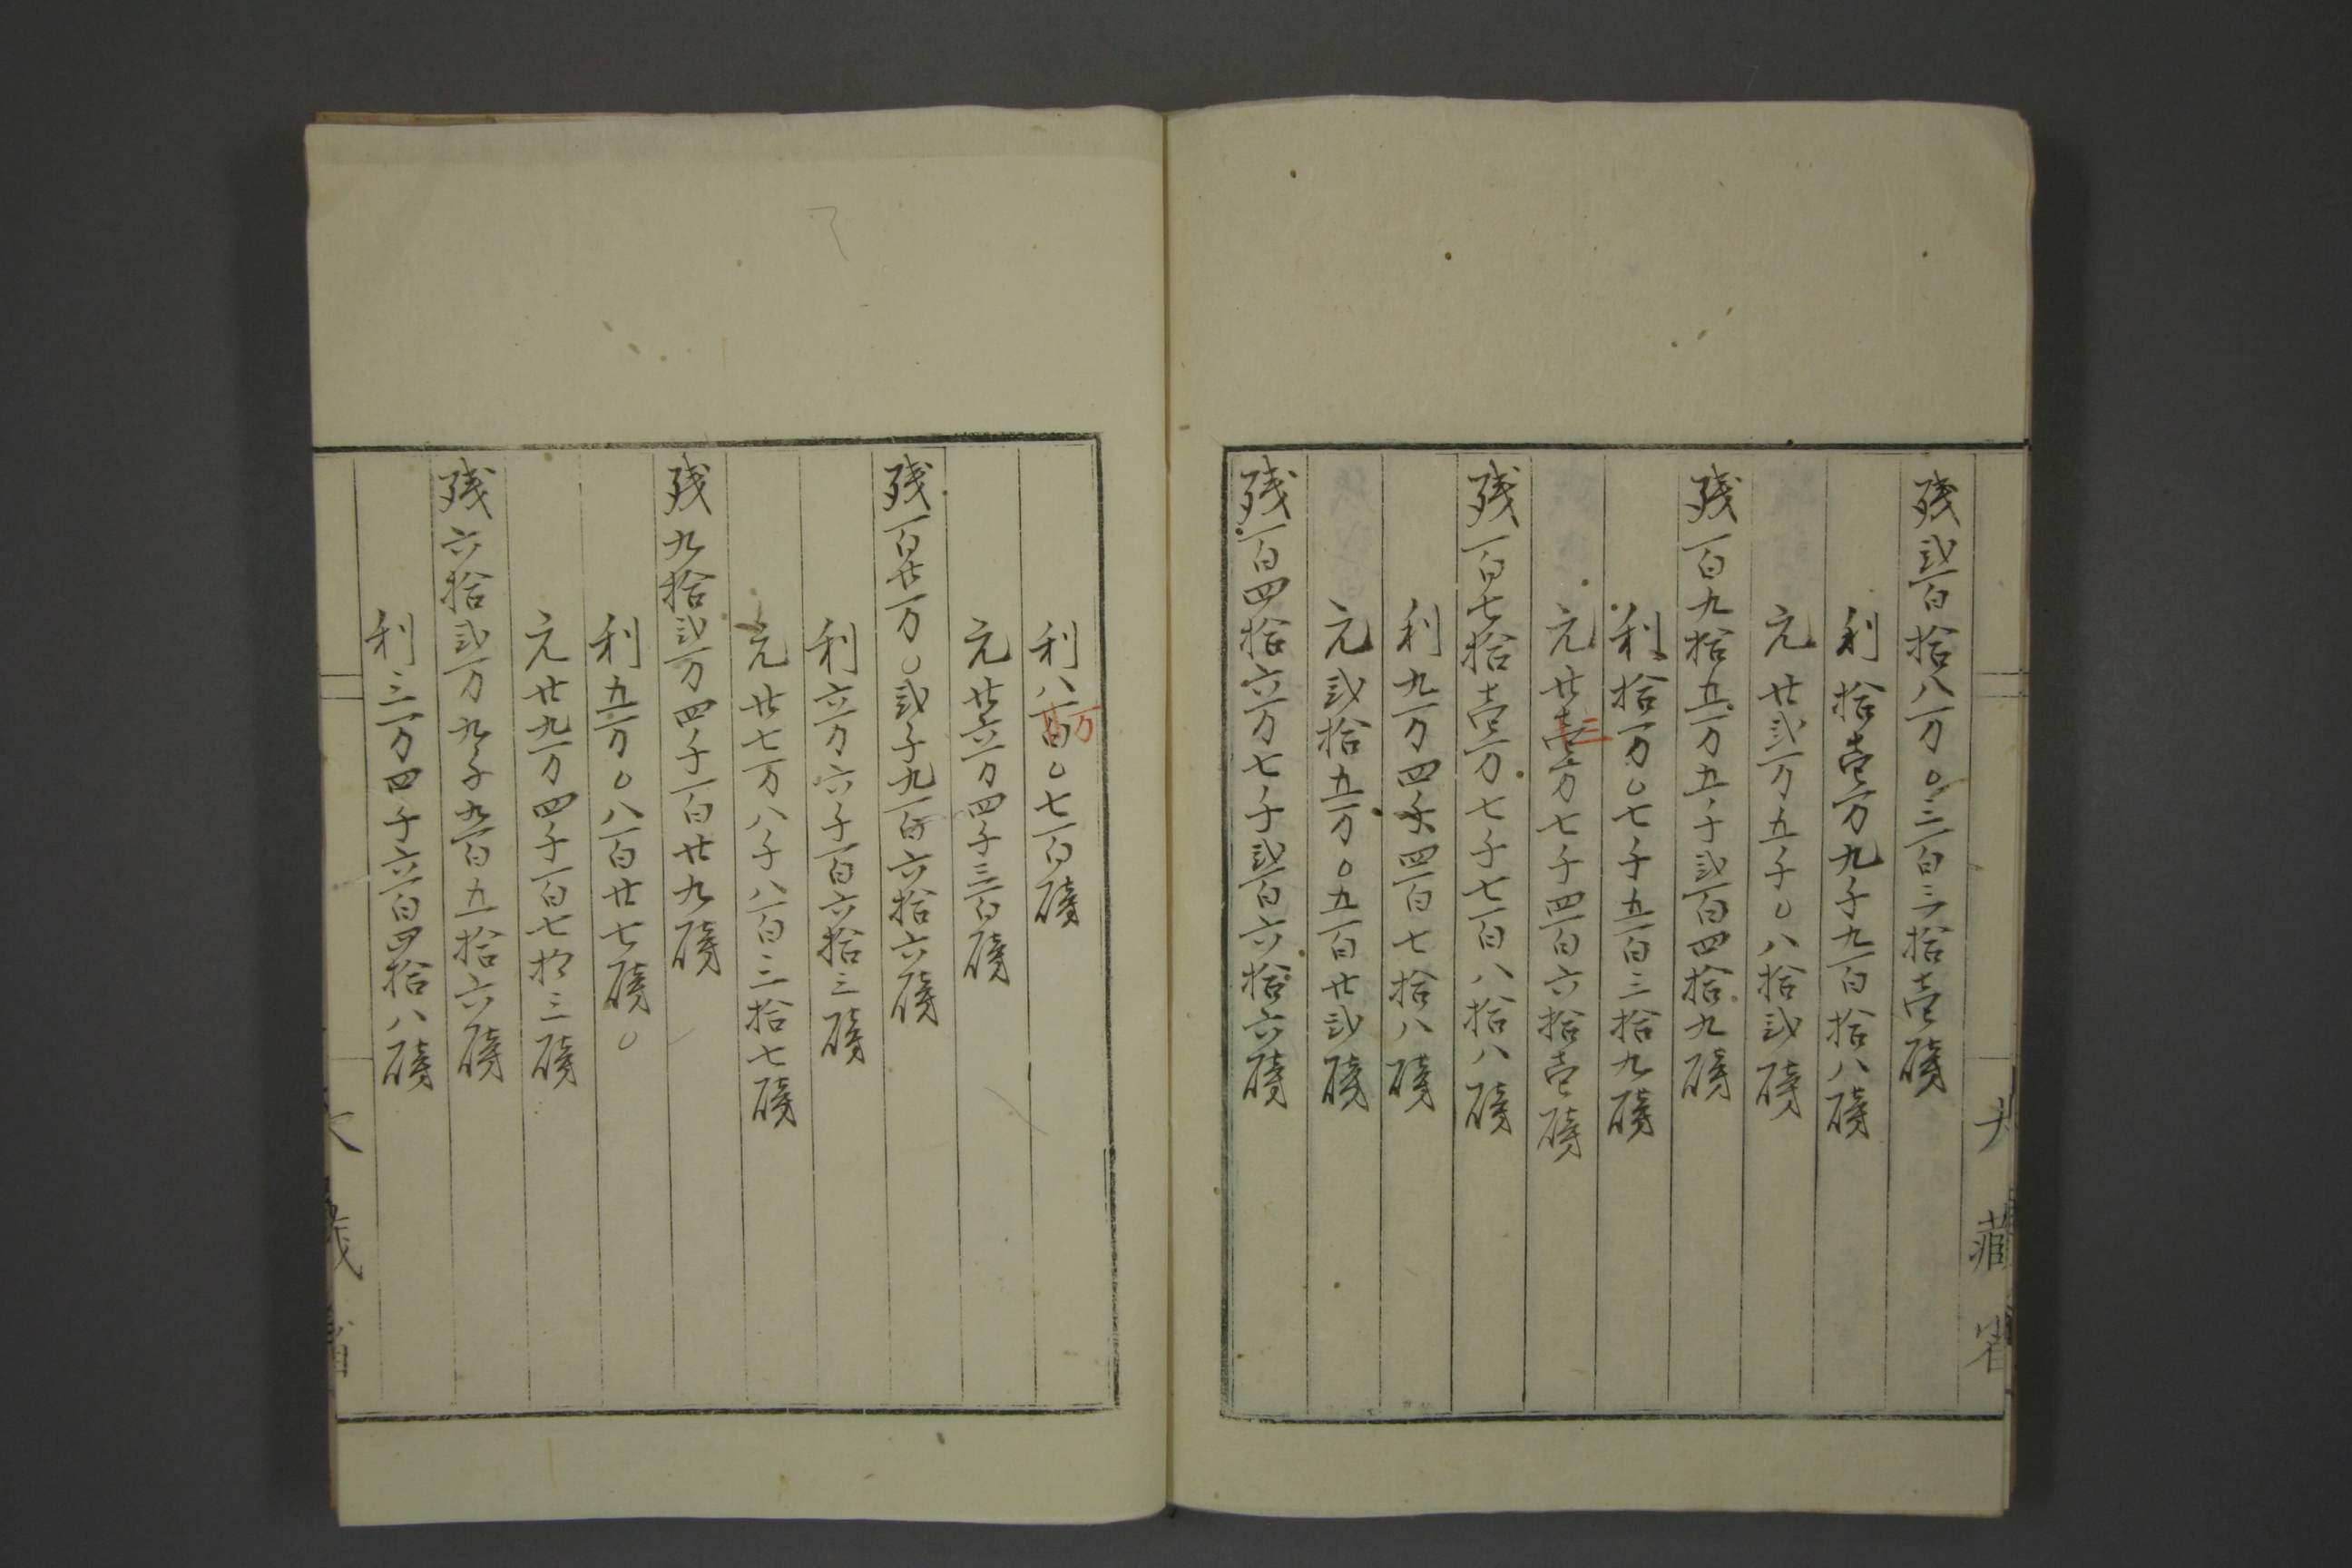 残貳百拾八万〇三百三拾壱磅
利拾壱万九千九百拾八磅
元廿貳万五千〇八拾貳磅
残一百九拾五万五千貳百四拾九磅
利拾万〇七千五百三拾九磅
元廿壱三万七千四百六拾壱磅
残一百七拾壱万七千七百八拾八磅
利九万四千四百七拾八磅
元貳拾五万〇五百廿貳磅
残一百四拾六万七千貳百六拾六磅
大藏省
利八百万〇七百磅
元廿六万四千三百磅
残一百廿万〇貳千九百六拾六磅
利六万六千一百六拾三磅
元廿七万八千八百三拾七磅
残九拾貳万四千一百廿九磅
利五万〇八百廿七磅〇
元廿九万四千一百七拾三磅
残六拾貳万九千九百五拾六磅
利三万四千六百四拾八磅
大藏省